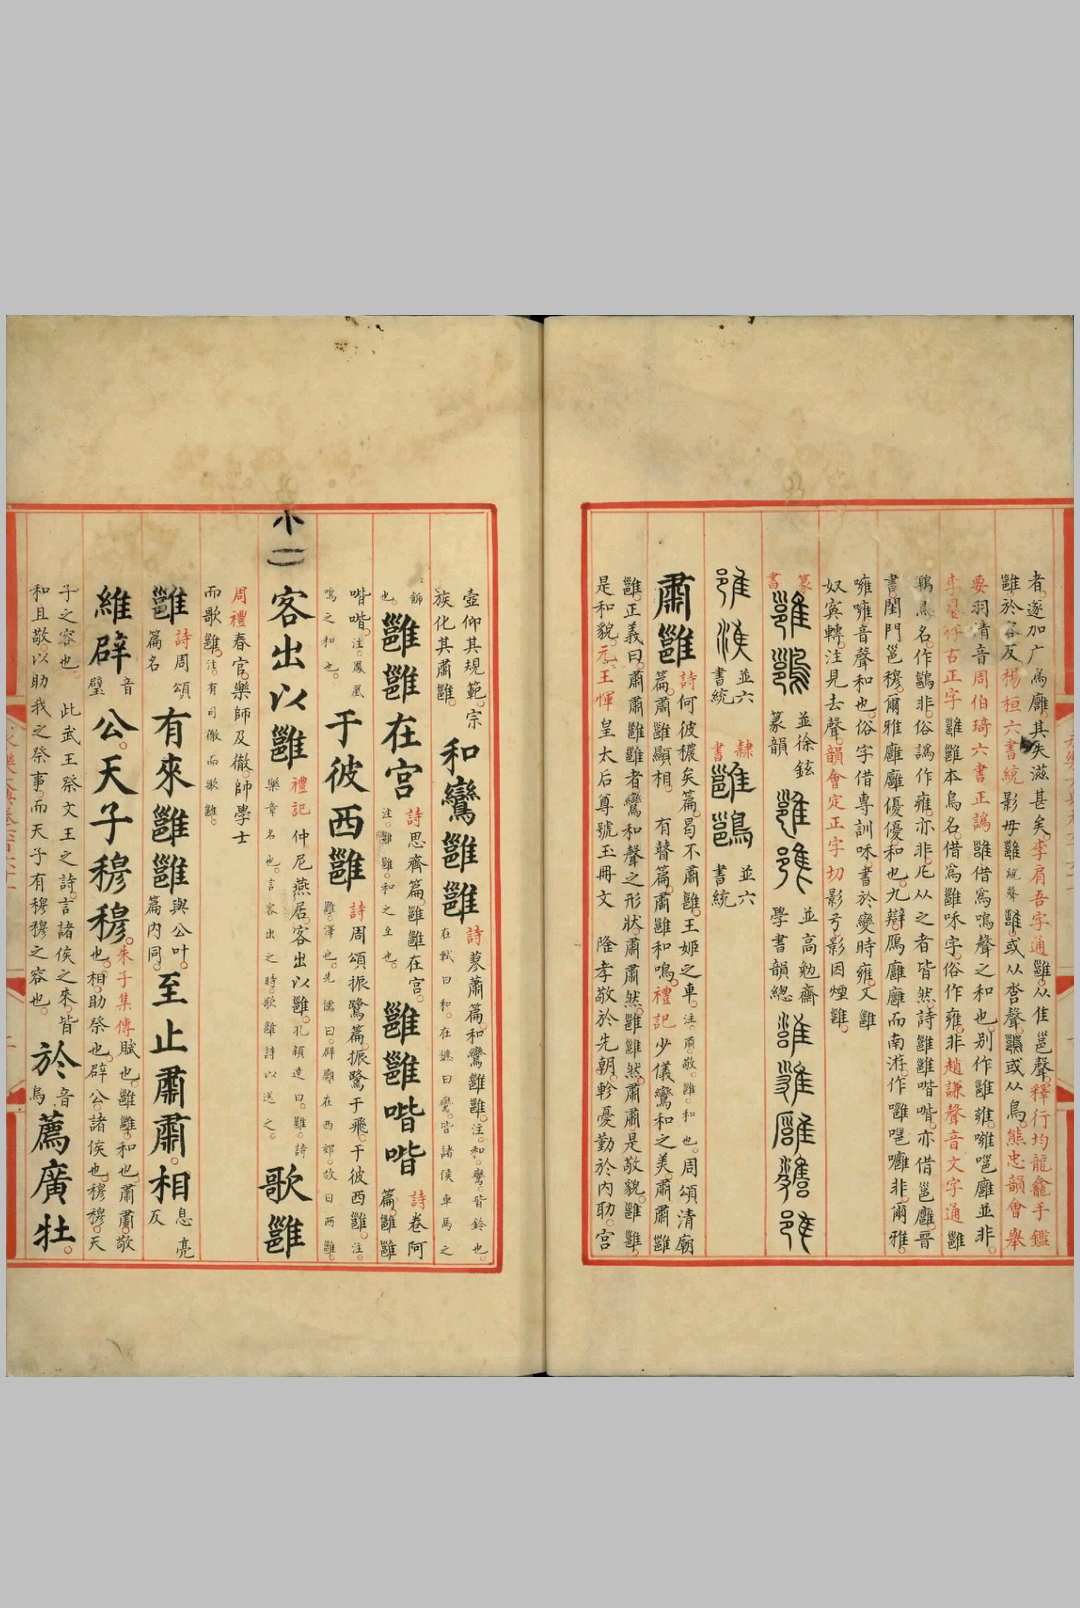 者遂加广為廱其失滋甚矣李肩吾字通雝从隹邕聲釋行均龍龕手鑑
雝於容反楊桓六書統影母雝統聲雝或从聲或从鳥熊忠韻會舉
要羽清音周伯琦六書正譌雝借為鳴聲之和也別作雝雍噰嗈廱並非
古正字雝雝本鳥名借為雝咊字俗作雍非趙謙聲音文字通雝
鳥名作鷛非俗譌作雍亦非凡从之者皆然詩雝雝喈喈亦借邕廱晉
書閨門邕穆爾雅廱廱優優和也九辯鴈廱廱而南游作噰嗈非爾雅
噰噰音聲和也俗字借専訓咊書於變時雍又雝
奴賓轉注見去聲韻會定正字切影弓影因煙雝
篆書
並徐鉉篆韻
並高勉齋學書韻總
並六書統
隸書
並六書統
肅雝
詩何彼穠矣篇曷不肅雝王姬之車注肅敬雝和也周頌清廟
篇肅雝顯相有瞽篇肅雝和鳴禮記少儀鸞和之美肅肅雝
雝正義曰肅肅雝雝者鸞和聲之形狀肅肅然雝雝然肅肅是敬貌雝雝
是和貌元王惲皇太后尊號玉冊文隆孝敬於先朝軫憂勤於內助宮
壺仰其規範宗
族化其肅雝
和鸞雝雝
詩蓼蕭篇和鸞雝雝注和鸞皆鈴也
在軾曰和在鑣曰鸞皆諸侯車馬之
飾也
雝雝在宮
詩思齊篇雝雝在宮
注雝雝和之至也
雝雝喈喈
詩卷阿
篇雝雝
喈喈注鳳凰
鳴之和也
于彼西雝
詩周頌振鷺篇振鷺于飛于彼西雝注
雝澤也先儒曰辟廱在西郊故曰西雝
客出以雝
禮記仲尼燕居客出以雝孔穎達曰雝詩
樂章名也言客出之時歌雝詩以送之
歌雝
周禮春官樂師及徹帥學士
而歌雝注有司徹而歌雝
雝
詩周頌
篇名
有來雝雝
與公叶
篇內同
至止肅肅相
息亮
反
維辟
音
璧
公天子穆穆
朱子集傳賦也雝雝和也肅肅敬
也相助祭也辟公諸侯也穆穆天
子之容也此武王祭文王之詩言諸侯之來皆
和且敬以助我之祭事而天子有穆穆之容也
於
音
烏
薦廣牡